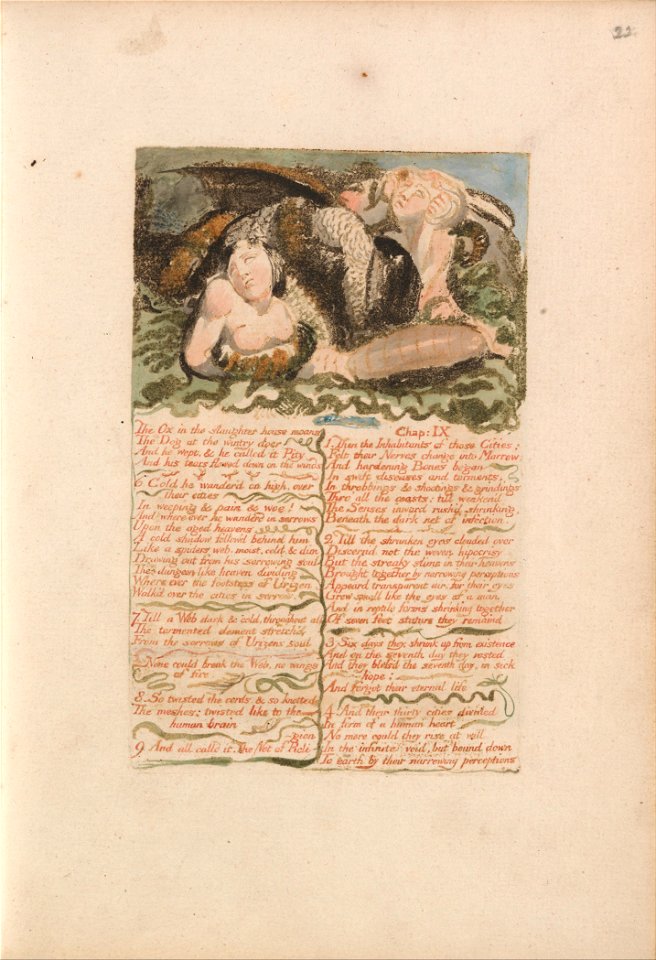 22
The Ox in the slaughter house moans
The Dog at the wintry door
And he wept, & he called it Pity
And his tears flowed down on the winds
6 Cold he wander'd on high, over
their cities
In weeping & pain & woe!
And where-ever he wanderd in sorrows
Upon the aged heavens
A cold shadow follow'd behind him
Like a spiders web, moist, cold, & dim
Drawing out from his sorrowing soul
The dungeon-like heaven dividing
Where ever the footsteps of Urizen
Walk'd over the cities in sorrow.
7 Till a Web dark & cold, throughout all
The tormented element stretch'd
From the sorrows of Urizens soul
None could break the Web, no wings
of fire
8. So twisted the cords, & so knotted
The meshes: twisted like to the
human brain
-gion
9 And all calld it, The Net of Reli-
Chap: IX
1. Then the Inhabitants of those Cities:
Felt their Nerves change into Marrow
And hardening Bones began
In swift diseases and torments,
In throbbings & shootings & grindings
Thro' all the coasts; till weaken'd
The Senses inward rush'd shrinking,
Beneath the dark net of infection.
2. Till the shrunken eyes clouded over
Discernd not the woven hipocrisy
But the streaky slime in their heavens
Brought together by narrowing perceptions
Appeard transparent air; for their eyes
Grew small like the eyes of a man
And in reptile forms shrinking together
Of seven feet stature they remaind
3. Six days they shrunk up from existence
And on the seventh day they rested
And they bless'd the seventh day, in sick
hope:
And forgot their eternal life
4. And their thirty cities divided
In form of a human heart
No more could they rise at will
In the infinite void, but bound down
To earth by their narrowing perceptions